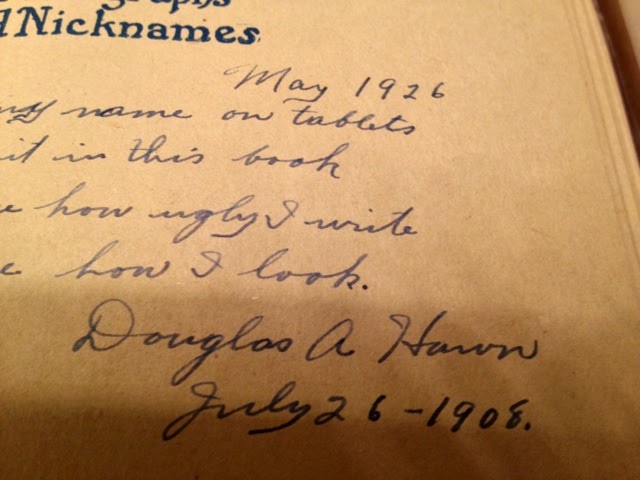 Nicknames
May 1926
my name on tablets
it in this book
how ugly I write
how I look.
Douglas A Hawn
July 26-1908.